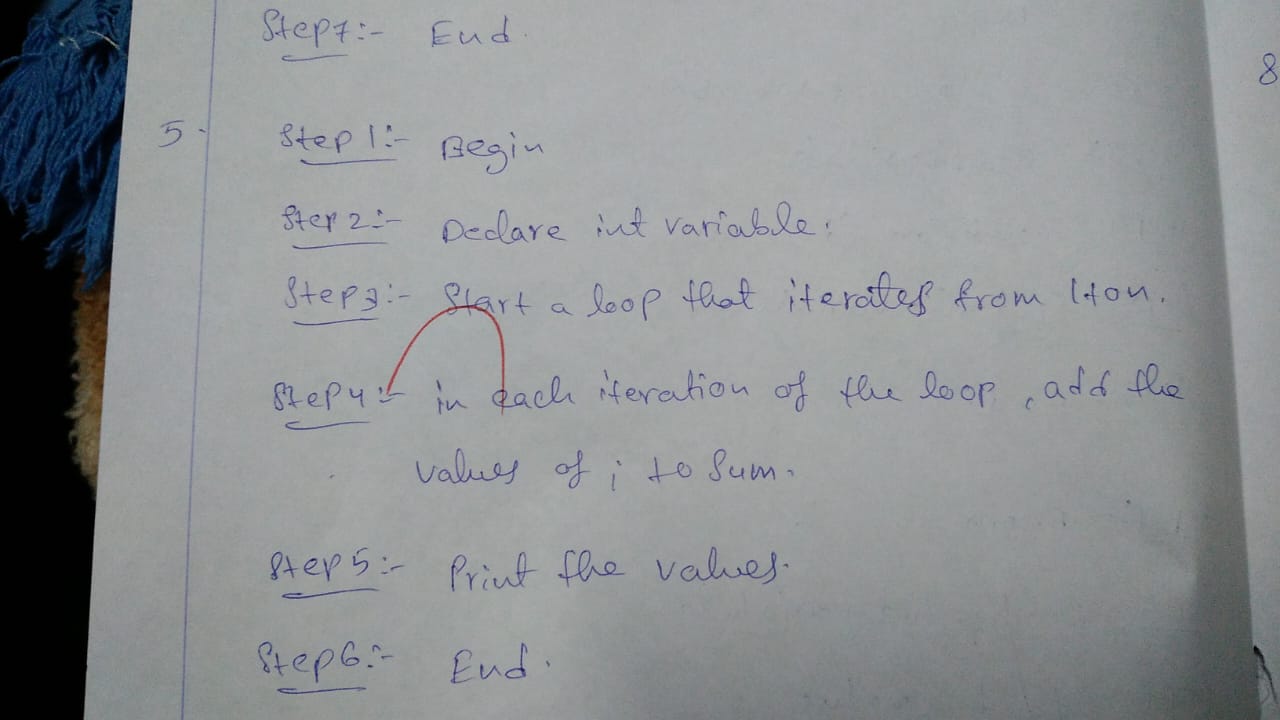 Step7:- End.
8
5. Step 1:- Begin
Step 2:- Declare int variable.
Step3:- Start a loop that iterates from 1 to n.
Step4:- in each iteration of the loop, add the
values of i to Sum.
Step5:- Print the values.
Step6:- End.